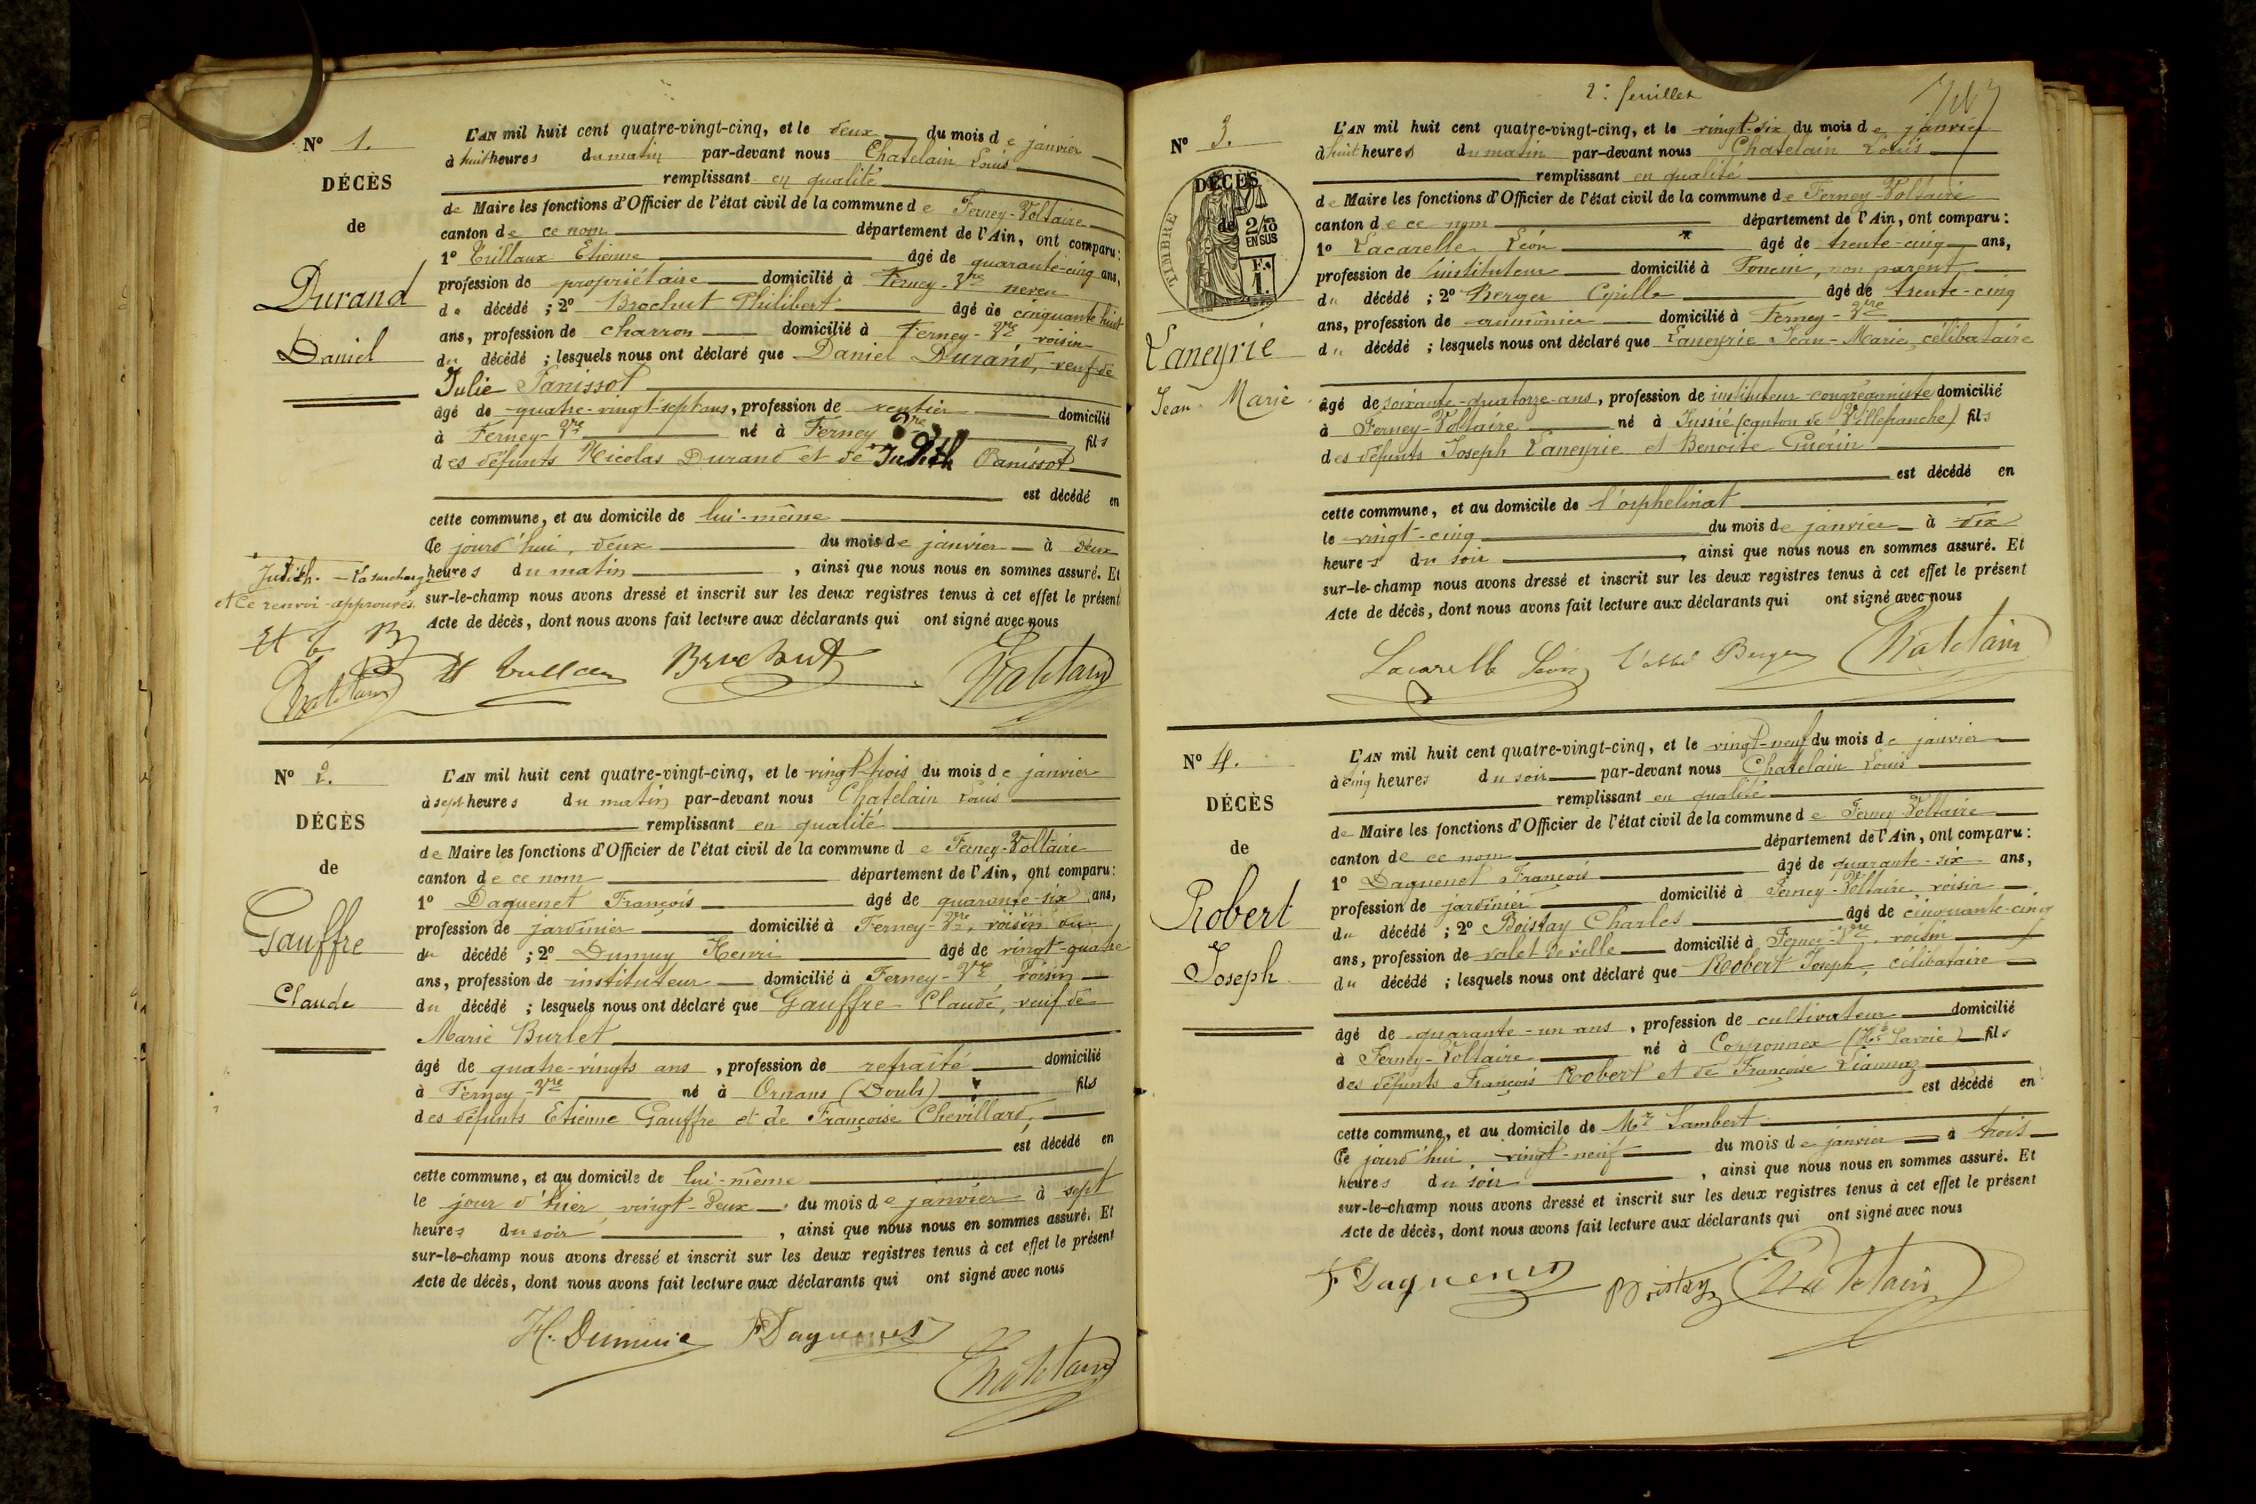 Nº 1.
DÉCÈS
de
Durand
Daniel
L'AN mil huit cent quatre-vingt-cinq, et le deux du mois de janvier
à huit heures du matin par-devant nous Chatelain Louis
remplissant en qualité
de Maire les fonctions d'Officier de l'état civil de la commune de Ferney-Voltaire
canton de ce nom département de l'Ain, ont comparu:
1º Etienne âgé de quarante-cinq ans,
profession de propriétaire domicilié à Ferney-Vre neveu
du décédé; 2º Brochut Philibert âgé de cinquante huit
ans, profession de charron domicilié à Ferney-Vre voisin
du décédé; lesquels nous ont déclaré que Daniel Durand, veuf de
Julie Panissot
âgé de quatre-vingt-sept ans, profession de rentier domicilié
à Ferney-Vre né à Ferney Vre fils
des défunts Nicolas Durand et de Judith Panissot
est décédé en
cette commune, et au domicile de lui-même
Ce jourd'hui, deux du mois de janvier à deux
heures du matin, ainsi que nous nous en sommes assuré. Et
sur-le-champ nous avons dressé et inscrit sur les deux registres tenus à cet effet le présent
Acte de décès, dont nous avons fait lecture aux déclarants qui ont signé avec nous
Judith. – La surcharge
et ce renvoi approuvés.
Et T B
Chatelain
Brochut
Chatelain
Nº 2.
DÉCÈS
de
Gauffre
Claude
L'AN mil huit cent quatre-vingt-cinq, et le vingt-trois du mois de janvier
à sept heures du matin par-devant nous Chatelain Louis
remplissant en qualité
de Maire les fonctions d'Officier de l'état civil de la commune de Ferney-Voltaire
canton de ce nom département de l'Ain, ont comparu:
1º Daquenet François âgé de quarante-six ans,
profession de jardinier domicilié à Ferney-Vre, voisin du
du décédé; 2º Dumuy Henri âgé de vingt-quatre
ans, profession de instituteur domicilié à Ferney-Vre, voisin
du décédé; lesquels nous ont déclaré que Gauffre Claude, veuf de
Marie Burlet
âgé de quatre-vingts ans, profession de retraité domicilié
à Ferney-Vre né à Ornans (Doubs) fils
des défunts Etienne Gauffre et de Françoise Chevillard,
est décédé en
cette commune, et au domicile de lui-même
le jour d'hier, vingt-deux, du mois de janvier à sept
heures du soir, ainsi que nous nous en sommes assuré. Et
sur-le-champ nous avons dressé et inscrit sur les deux registres tenus à cet effet le présent
Acte de décès, dont nous avons fait lecture aux déclarants qui ont signé avec nous
H. F Daquenet
Chatelain
2e feuillet
Nº 3.
DÉCÈS
de
TIMBRE
2/10 EN SUS
F. 1.
Laneyrie
Jean-Marie
L'AN mil huit cent quatre-vingt-cinq, et le vingt-six du mois de janvier
à huit heures du matin par-devant nous Chatelain Louis
remplissant en qualité
de Maire les fonctions d'Officier de l'état civil de la commune de Ferney-Voltaire
canton de ce nom département de l'Ain, ont comparu:
1º Lacarelle Léon âgé de trente-cinq ans,
profession de instituteur domicilié à Poncin, non parent
du décédé; 2º Berger Cyrille âgé de trente-cinq
ans, profession de aumônier domicilié à Ferney-Vre
du décédé; lesquels nous ont déclaré que Laneyrie Jean-Marie, célibataire
âgé de soixante-quatorze ans, profession de instituteur congréganiste domicilié
à Ferney-Voltaire né à Jussié (canton de Villefranche) fils
des défunts Joseph Laneyrie et Benoite Guérin
est décédé en
cette commune, et au domicile de l'orphelinat
le vingt-cinq du mois de janvier à dix
heures du soir, ainsi que nous nous en sommes assuré. Et
sur-le-champ nous avons dressé et inscrit sur les deux registres tenus à cet effet le présent
Acte de décès, dont nous avons fait lecture aux déclarants qui ont signé avec nous
Lacarelle Léon L'abbé Berger Chatelain
Nº 4.
DÉCÈS
de
Robert
Joseph
L'AN mil huit cent quatre-vingt-cinq, et le vingt-neuf du mois de janvier
à cinq heures du soir par-devant nous Chatelain Louis
remplissant en qualité
de Maire les fonctions d'Officier de l'état civil de la commune de Ferney Voltaire
canton de ce nom département de l'Ain, ont comparu:
1º Daquenet François âgé de quarante-six ans,
profession de jardinier domicilié à Ferney-Voltaire, voisin
du décédé; 2º Boistay Charles âgé de cinquante-cinq
ans, profession de valet de ville domicilié à Ferney-Vre, voisin
du décédé; lesquels nous ont déclaré que Robert Joseph, célibataire
âgé de quarante-un ans, profession de cultivateur domicilié
à Ferney-Voltaire né à Copponnex (Hte Savoie) fils
des défunts François Robert et de Françoise
est décédé en
cette commune, et au domicile de Mr Lambert
Ce jourd'hui, vingt-neuf du mois de janvier à trois
heures du soir, ainsi que nous nous en sommes assuré. Et
sur-le-champ nous avons dressé et inscrit sur les deux registres tenus à cet effet le présent
Acte de décès, dont nous avons fait lecture aux déclarants qui ont signé avec nous
F Daquenet Boistay Chatelain